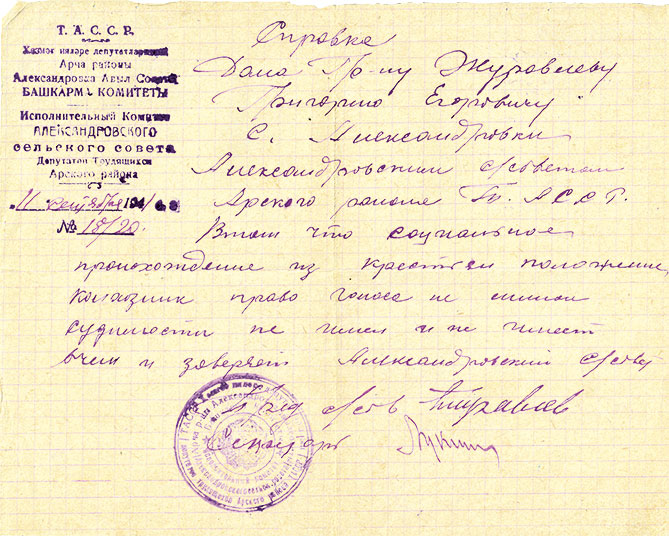 Т. А. С. С. Р.
Хезмәт ияләре депутатларының
Арча районы
Александровка Авыл Советы
БАШКАРМА КОМИТЕТЫ
Исполнительный Комитет
АЛЕКСАНДРОВСКОГО
сельского совета
Депутатов Трудящихся
Арского района
11 сентября 1941
№ 18/20.
Справка
Дана Гр-ну Журавлеву
Григорию Егоровичу
С. Александровки
Александровским с/советам
Арского района Т. АССР.
Втом что социальное
происхождение из крестьян положение
колхозник право голоса не лишон
судимости не имел и не имеет
вчем и заверяет Александровский с/совет
с/сов
Секретарь